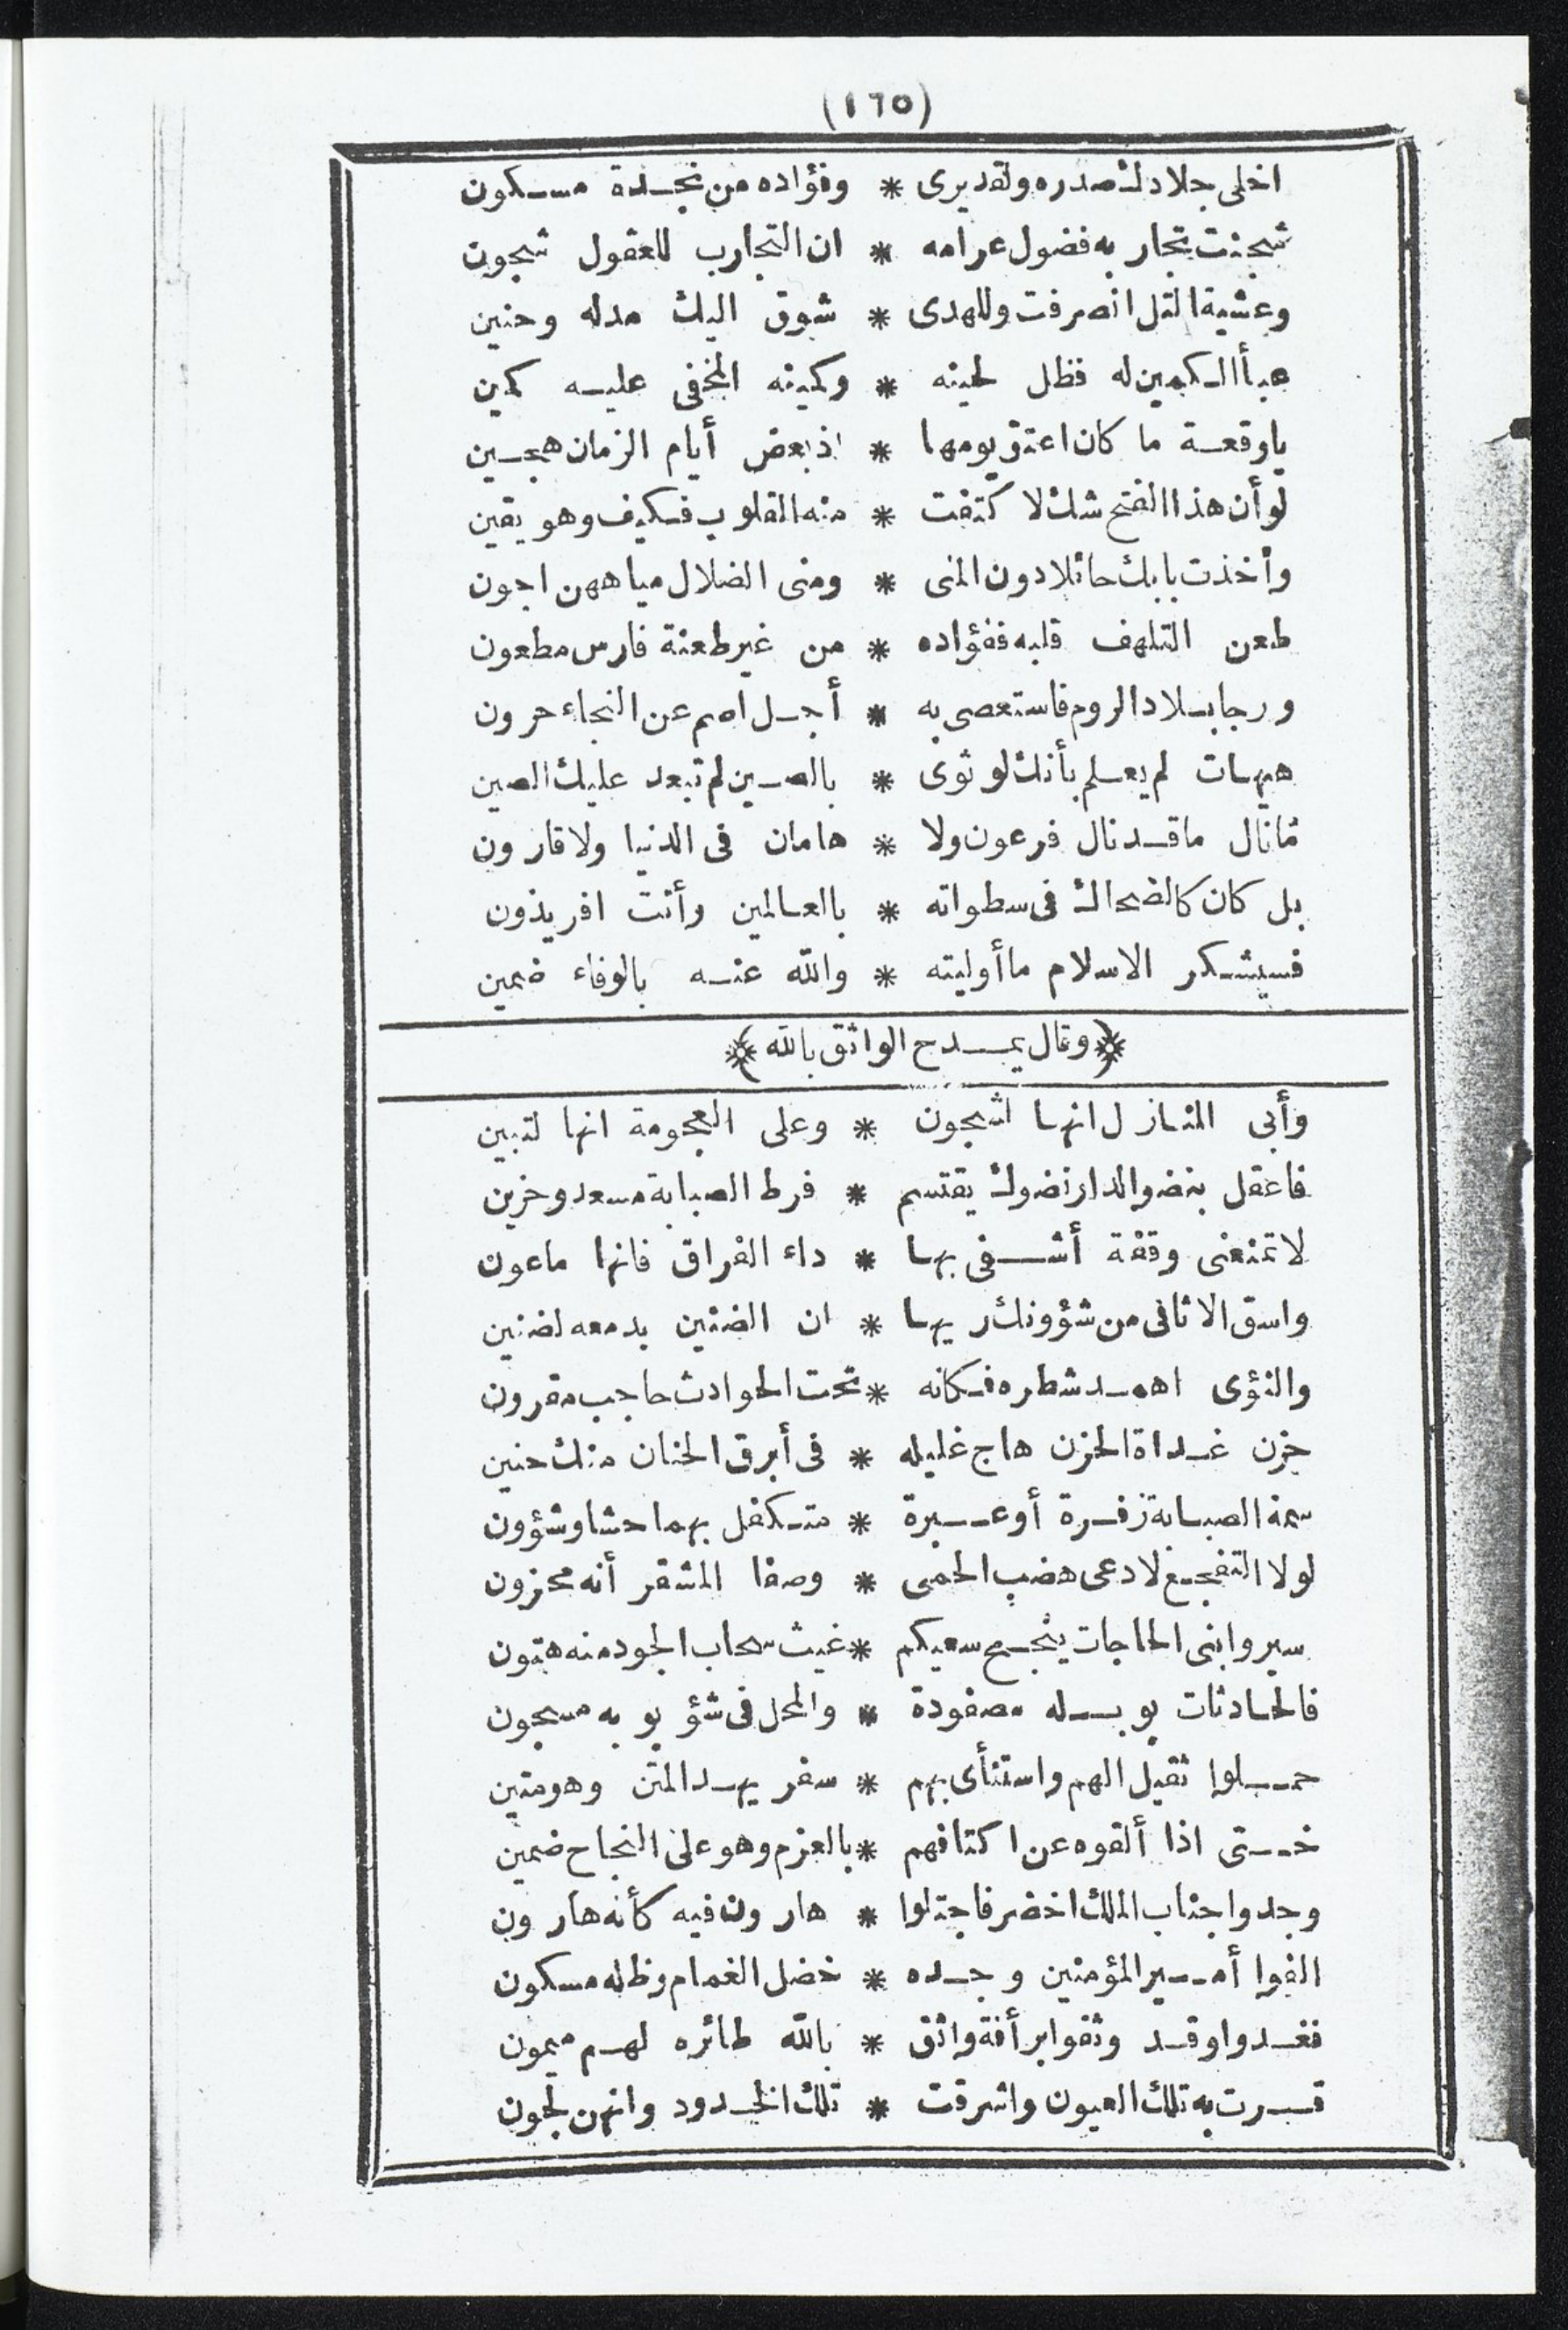 (١٦٥)
اخلى جلادك صدره ولقد يرى * وفؤاده من نجدة مسكون
شجنت تجاربه فضول عرامه * ان التجارب للعقول شجون
وعشية التل انصرفت وللهدى * شوق اليك مدله وحنين
عبأ الكمين له فظل لحينه * وكمينه المخفى عليه كمين
ياوقعة ما كان اعتق يومها * اذ بعض أيام الزمان هجين
لو أن هذا الفتح شك لاكتفت * منه القلوب فكيف وهو يقين
وأخذت بابك حائلا دون المنى * ومنى الضلال مياههن اجون
طعن التلهف قلبه ففؤاده * من غير طعنة فارس مطعون
ورجا بلاد الروم فاستعصى به * أجل اصم عن النجاء حرون
هيهات لم يعلم بأنك لو ثوى * بالصين لم تبعد عليك الصين
مانال ماقد نال فرعون ولا * هامان فى الدنيا ولا قارون
بل كان كالضحاك فى سطواته * بالعالمين وأنت افريذون
فسيشكر الاسلام ماأوليته * والله عنه بالوفاء ضمين
﴿وقال يمدح الواثق بالله﴾
وأبى المنازل انها لشجون * وعلى العجومة انها لتبين
فاعقل بنضو الدار نضوك يقتسم * فرط الصبابة مسعد وحزين
لاتمنعنى وقفة أشفى بها * داء الفراق فانها ماعون
واسق الاثافى من شؤونك ريها * ان الضنين بدمعه لضنين
والنؤى اهمد شطره فكانه * تحت الحوادث حاجب مقرون
حزن غداة الحزن هاج غليله * فى أبرق الحنان منك حنين
سمة الصبابة زفرة أو عبرة * متكفل بهما حشا وشؤون
لولا التفجع لادعى هضب الحمى * وصفا المشقر أنه محزون
سيروا بنى الحاجات ينجح سعيكم * غيث سحاب الجود منه هتون
فالحادثات بوبله مصفودة * والمحل فى شؤبوبه مسجون
حملوا ثقيل الهم واستنأى بهم * سفر يهد المتن وهو متين
حتى اذا ألقوه عن اكتافهم * بالعزم وهو على النجاح ضمين
وجدوا جناب الملك اخضر فاجتلوا * هارون فيه كأنه هارون
الفوا أمير المؤمنين وجده * خضل الغمام وظله مسكون
فغدوا وقد وثقوا برأفة واثق * بالله طائره لهم ميمون
قرت به تلك العيون واشرقت * تلك الخدود وانهن لجون